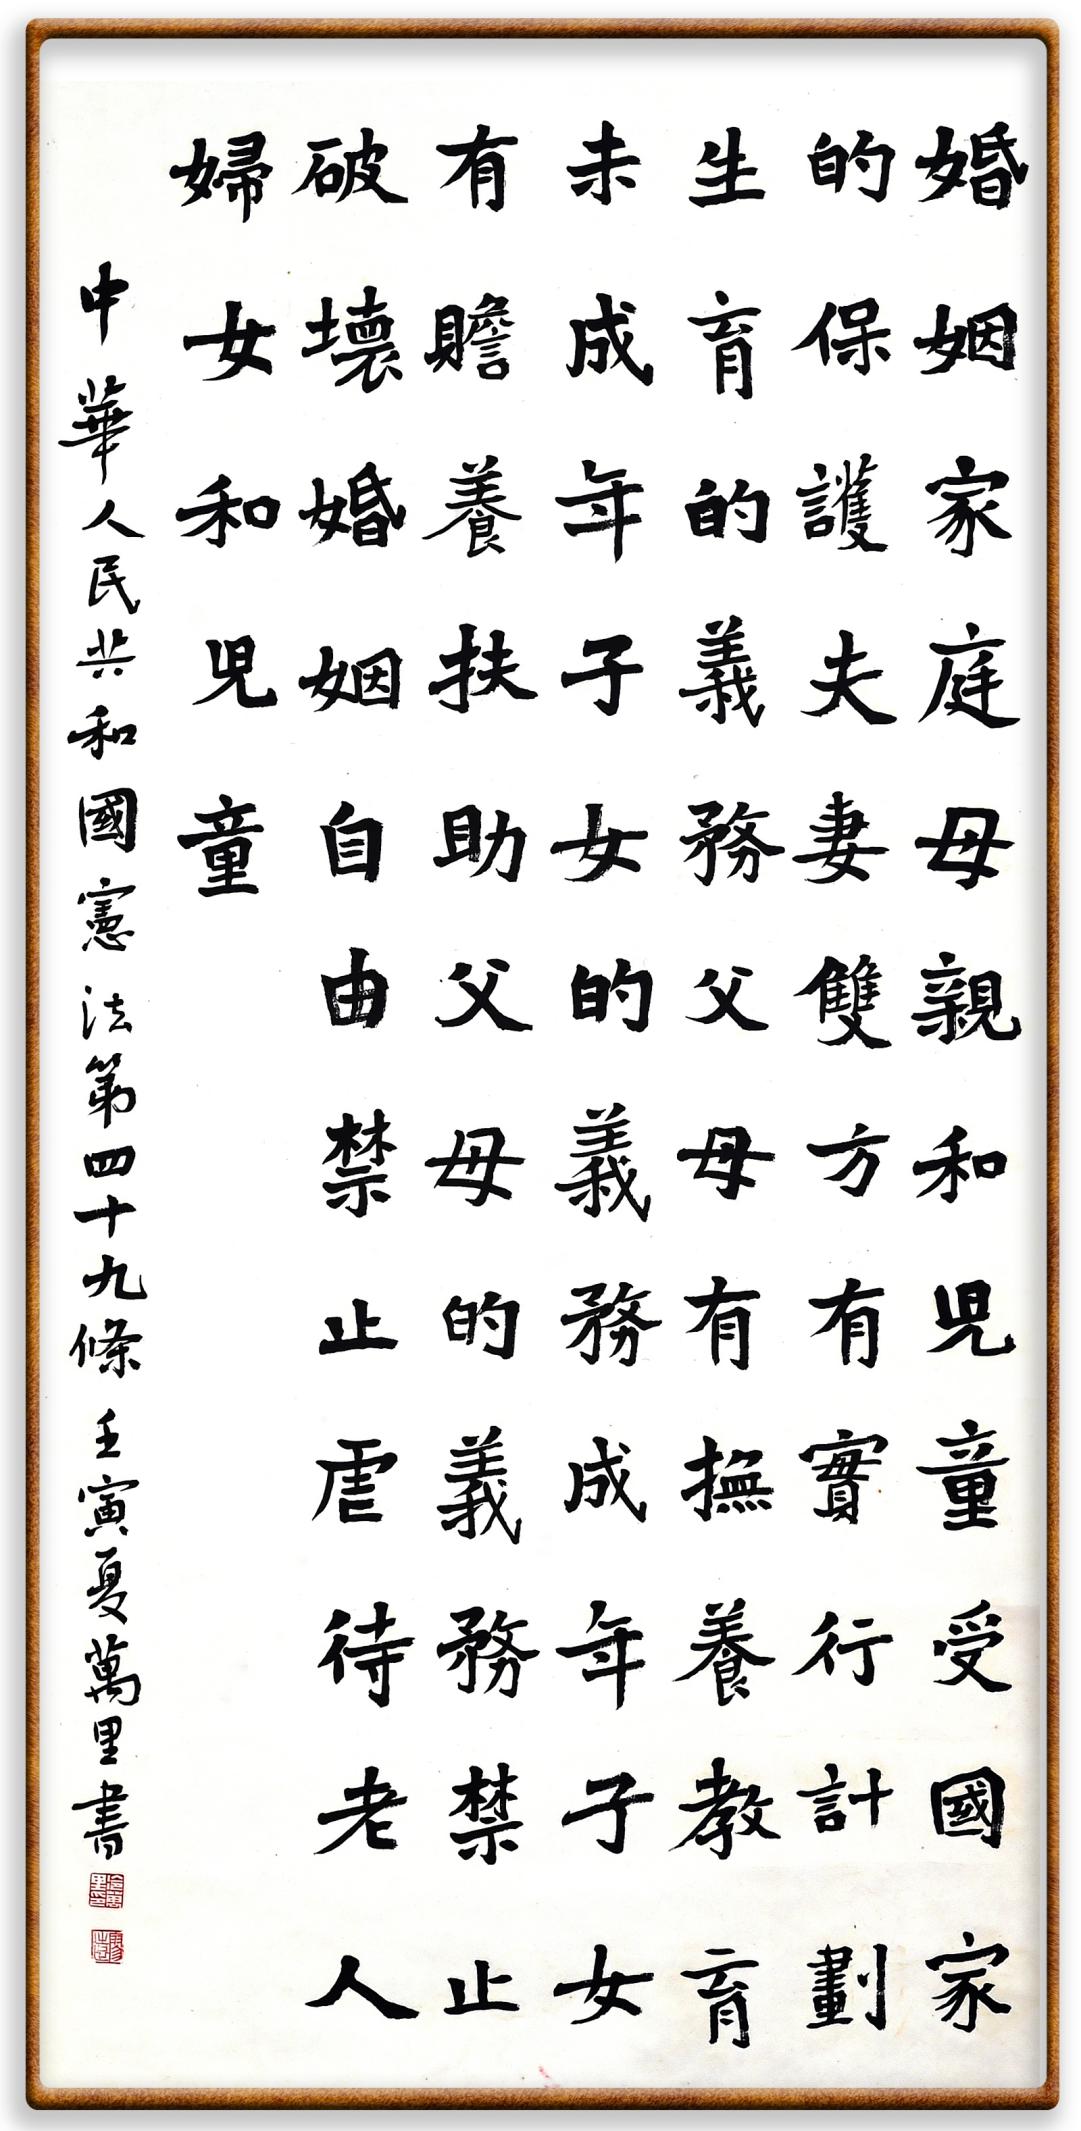 婚姻家庭母親和児童受國家
的保護夫妻雙方有實行計劃
生育的義務父母有撫養教育
未成年子女的義務成年子女
有贍養扶助父母的義務禁止
破壞婚姻自由禁止虐待老人
婦女和児童
中華人民共和國憲法第四十九條 壬寅夏萬里書